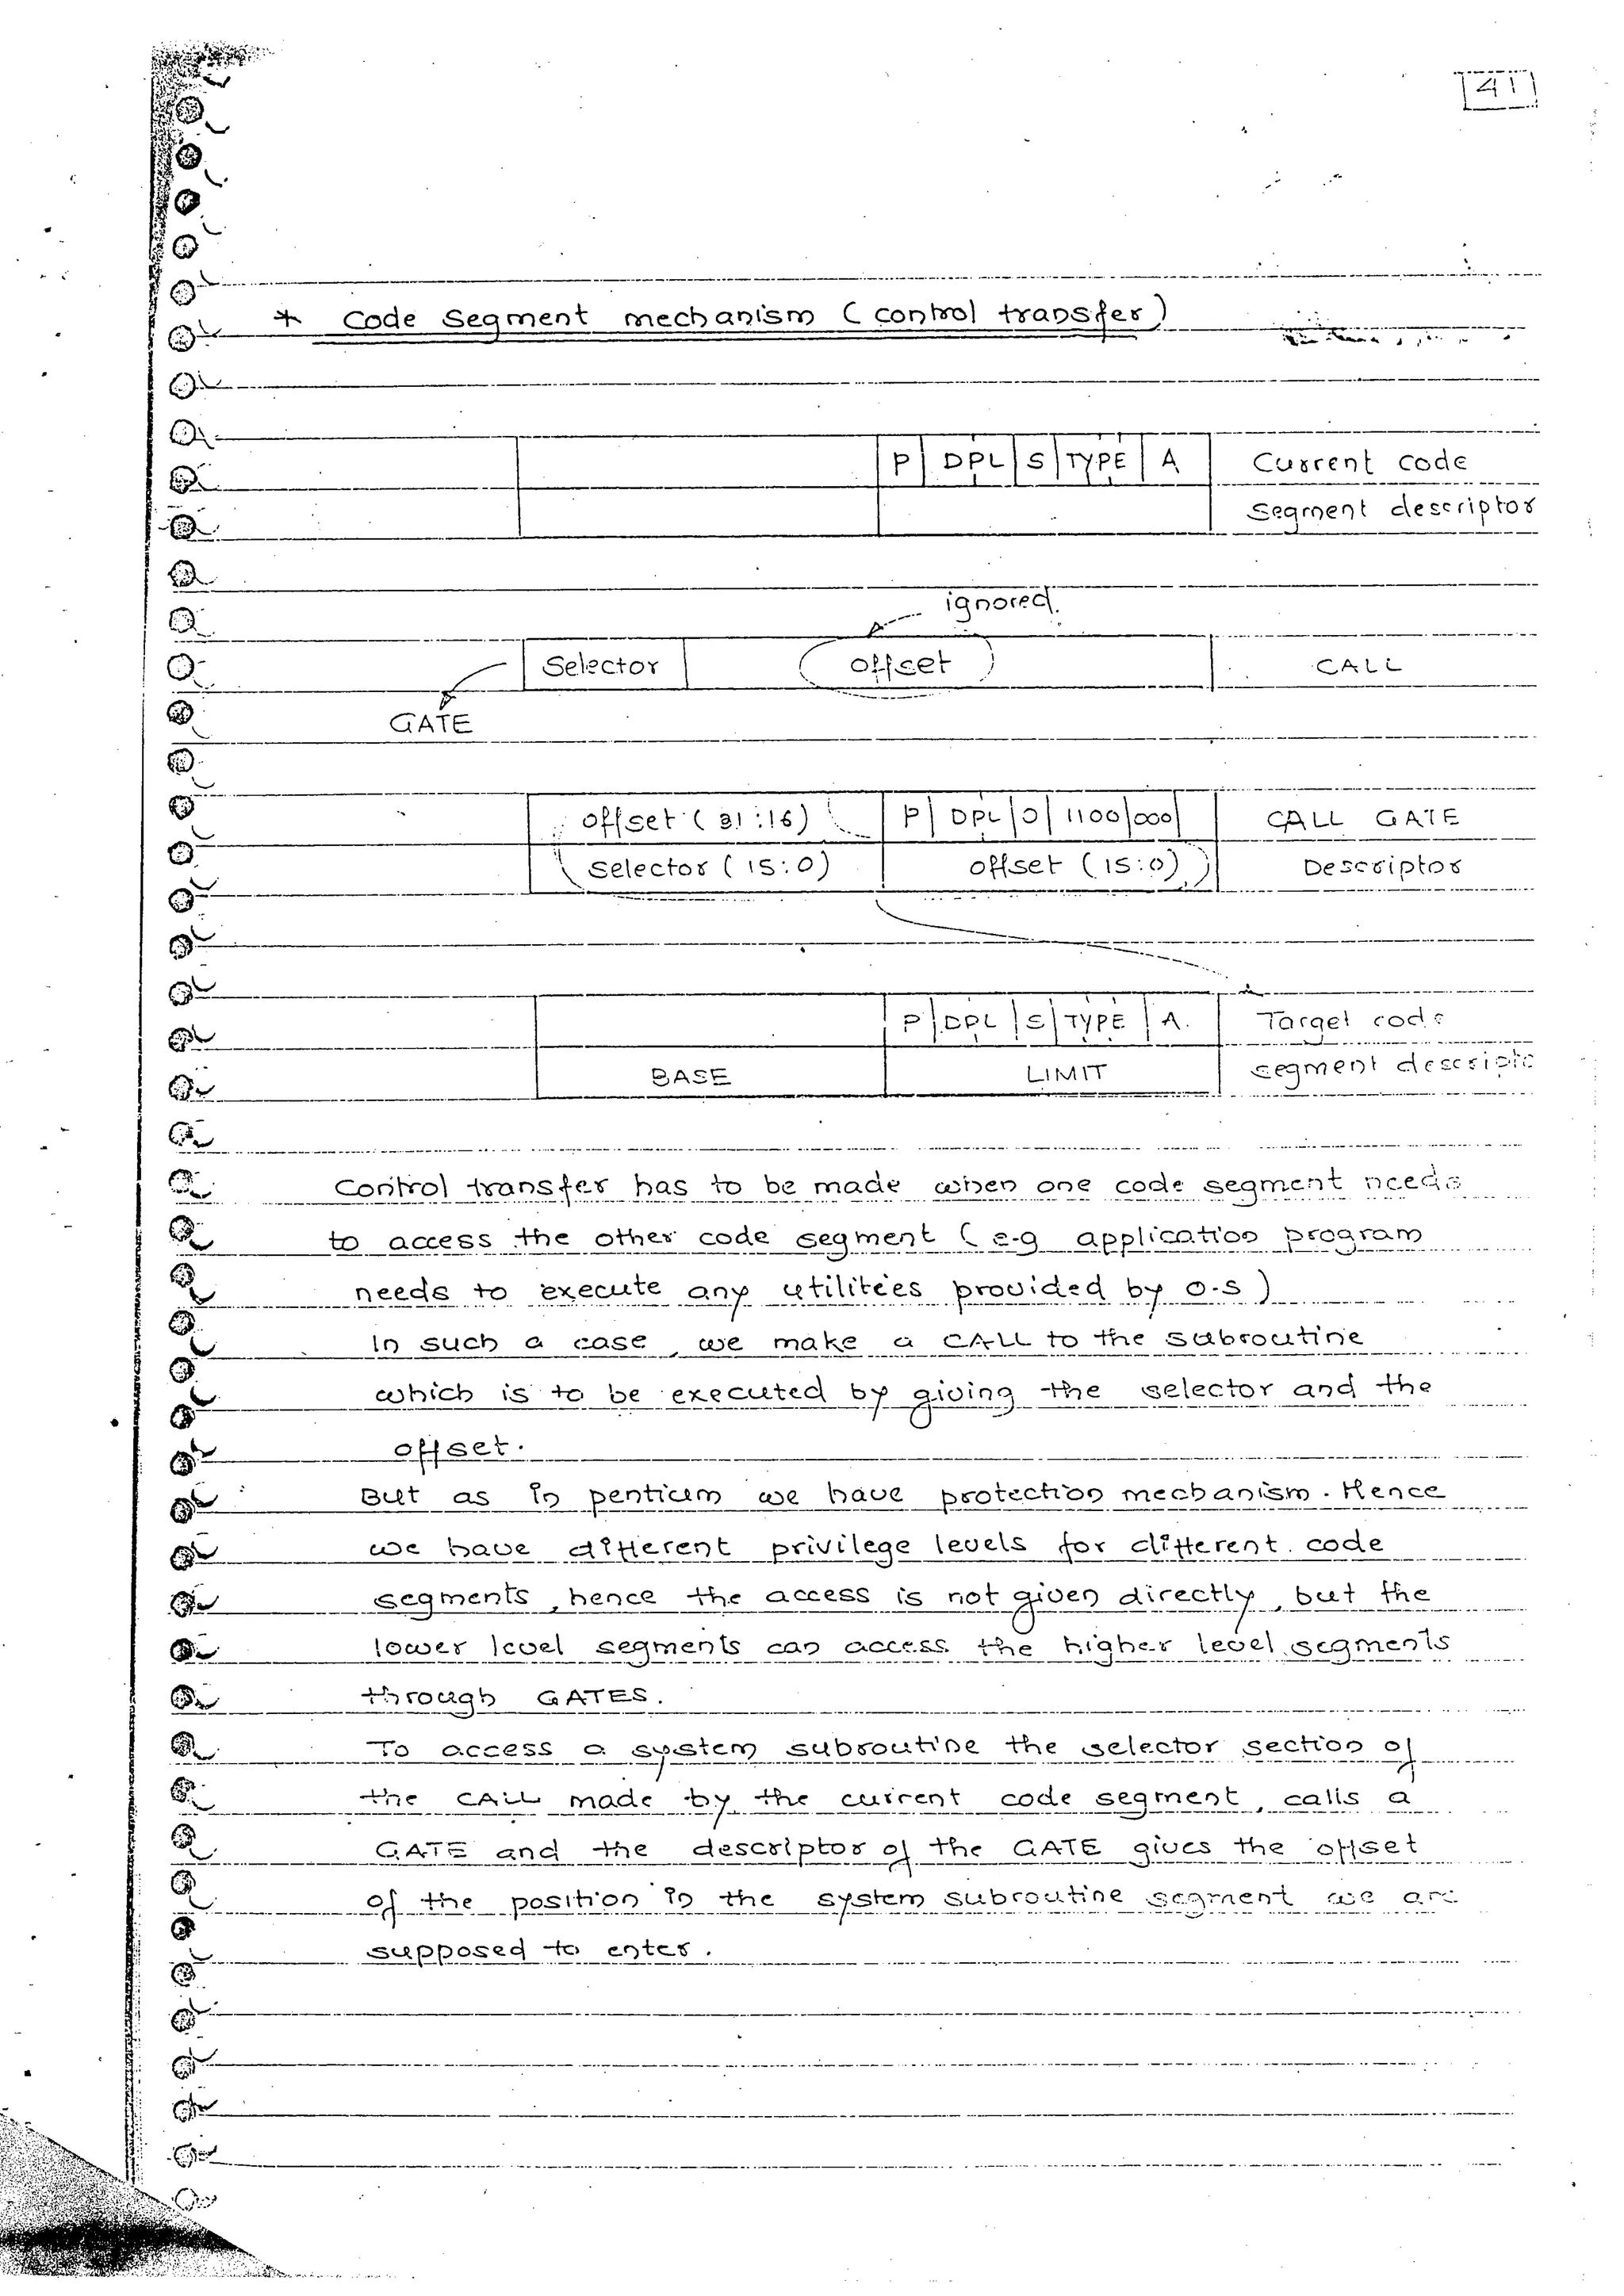 41
* Code Segment mechanism ( control transfer )
P DPL S TYPE A Current code
Segment descriptor
ignored.
Selector offset CALL
GATE
offset ( 31:16 ) P DPL 0 1100 000 CALL GATE
Selector ( 15:0 ) offset ( 15:0 ) Descriptor
P DPL S TYPE A. Target code
BASE LIMIT segment descripto
Control transfer has to be made when one code segment needs
to access the other code segment ( e-g application program
needs to execute any utilitees provided by O.S )
In such a case , we make a CALL to the subroutine
which is to be executed by giving the selector and the
offset.
But as in pentium we have protection mechanism. Hence
we have different privilege levels for different. code
segments , hence the access is not given directly , but the
lower level segments can access the higher level segments
through GATES.
To access a system subroutine the selector section of
the CALL made by the current code segment , calls a
GATE and the descriptor of the GATE gives the offset
of the position in the system subroutine segment we are
supposed to enter.